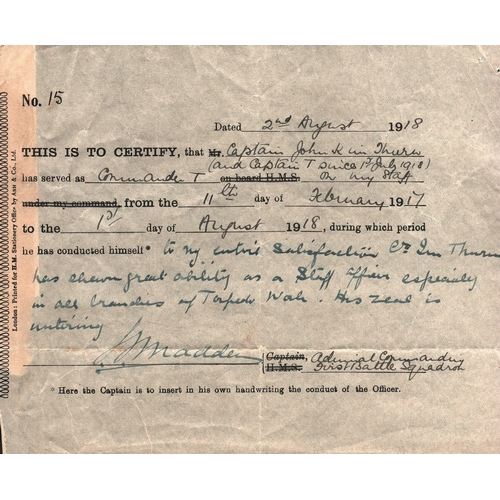 No. 15
Dated 2nd August 1918
THIS IS TO CERTIFY, that Mr. Captain John K im Thurn
(and Captain T since 1st July 1918)
has served as Commander T on board H.M.S. on my Staff
under my command, from the 11th day of February 1917
to the 1st day of August 1918, during which period
he has conducted himself* to my entire satisfaction Cr Im Thurn
has shewn great ability as a Staff Officer especially
in all branches of Torpedo Work. His zeal is
untiring
Madden Captain, Admiral Commanding
H.M.S. First Battle Squadron
* Here the Captain is to insert in his own handwriting the conduct of the Officer.
London: Printed for H.M. Stationery Office by & Co., Ltd.